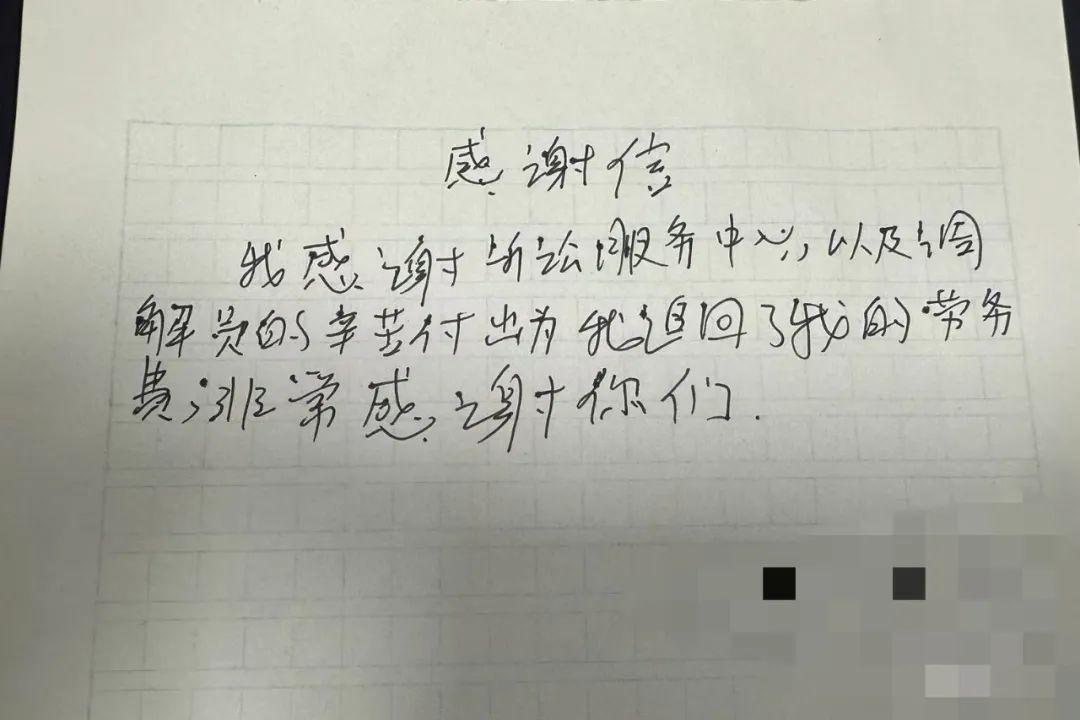 感谢信
我感谢诉讼服务中心,以及调
解员的辛苦付出为我追回了我的劳务
费,非常感谢你们.